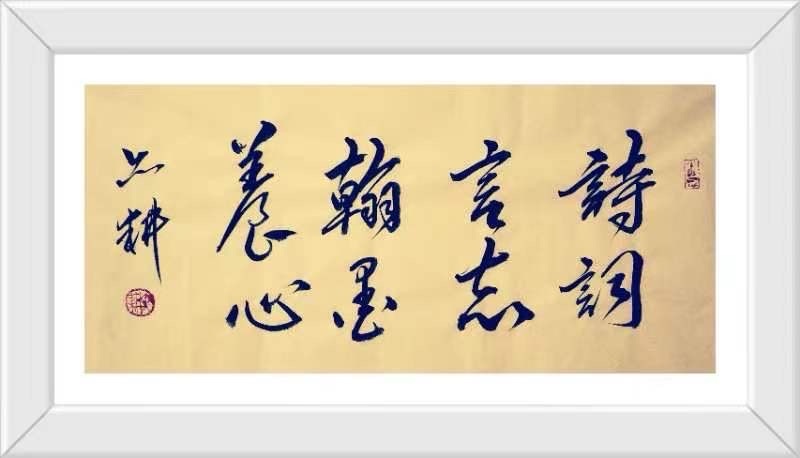 詩詞
言志
翰墨
養心